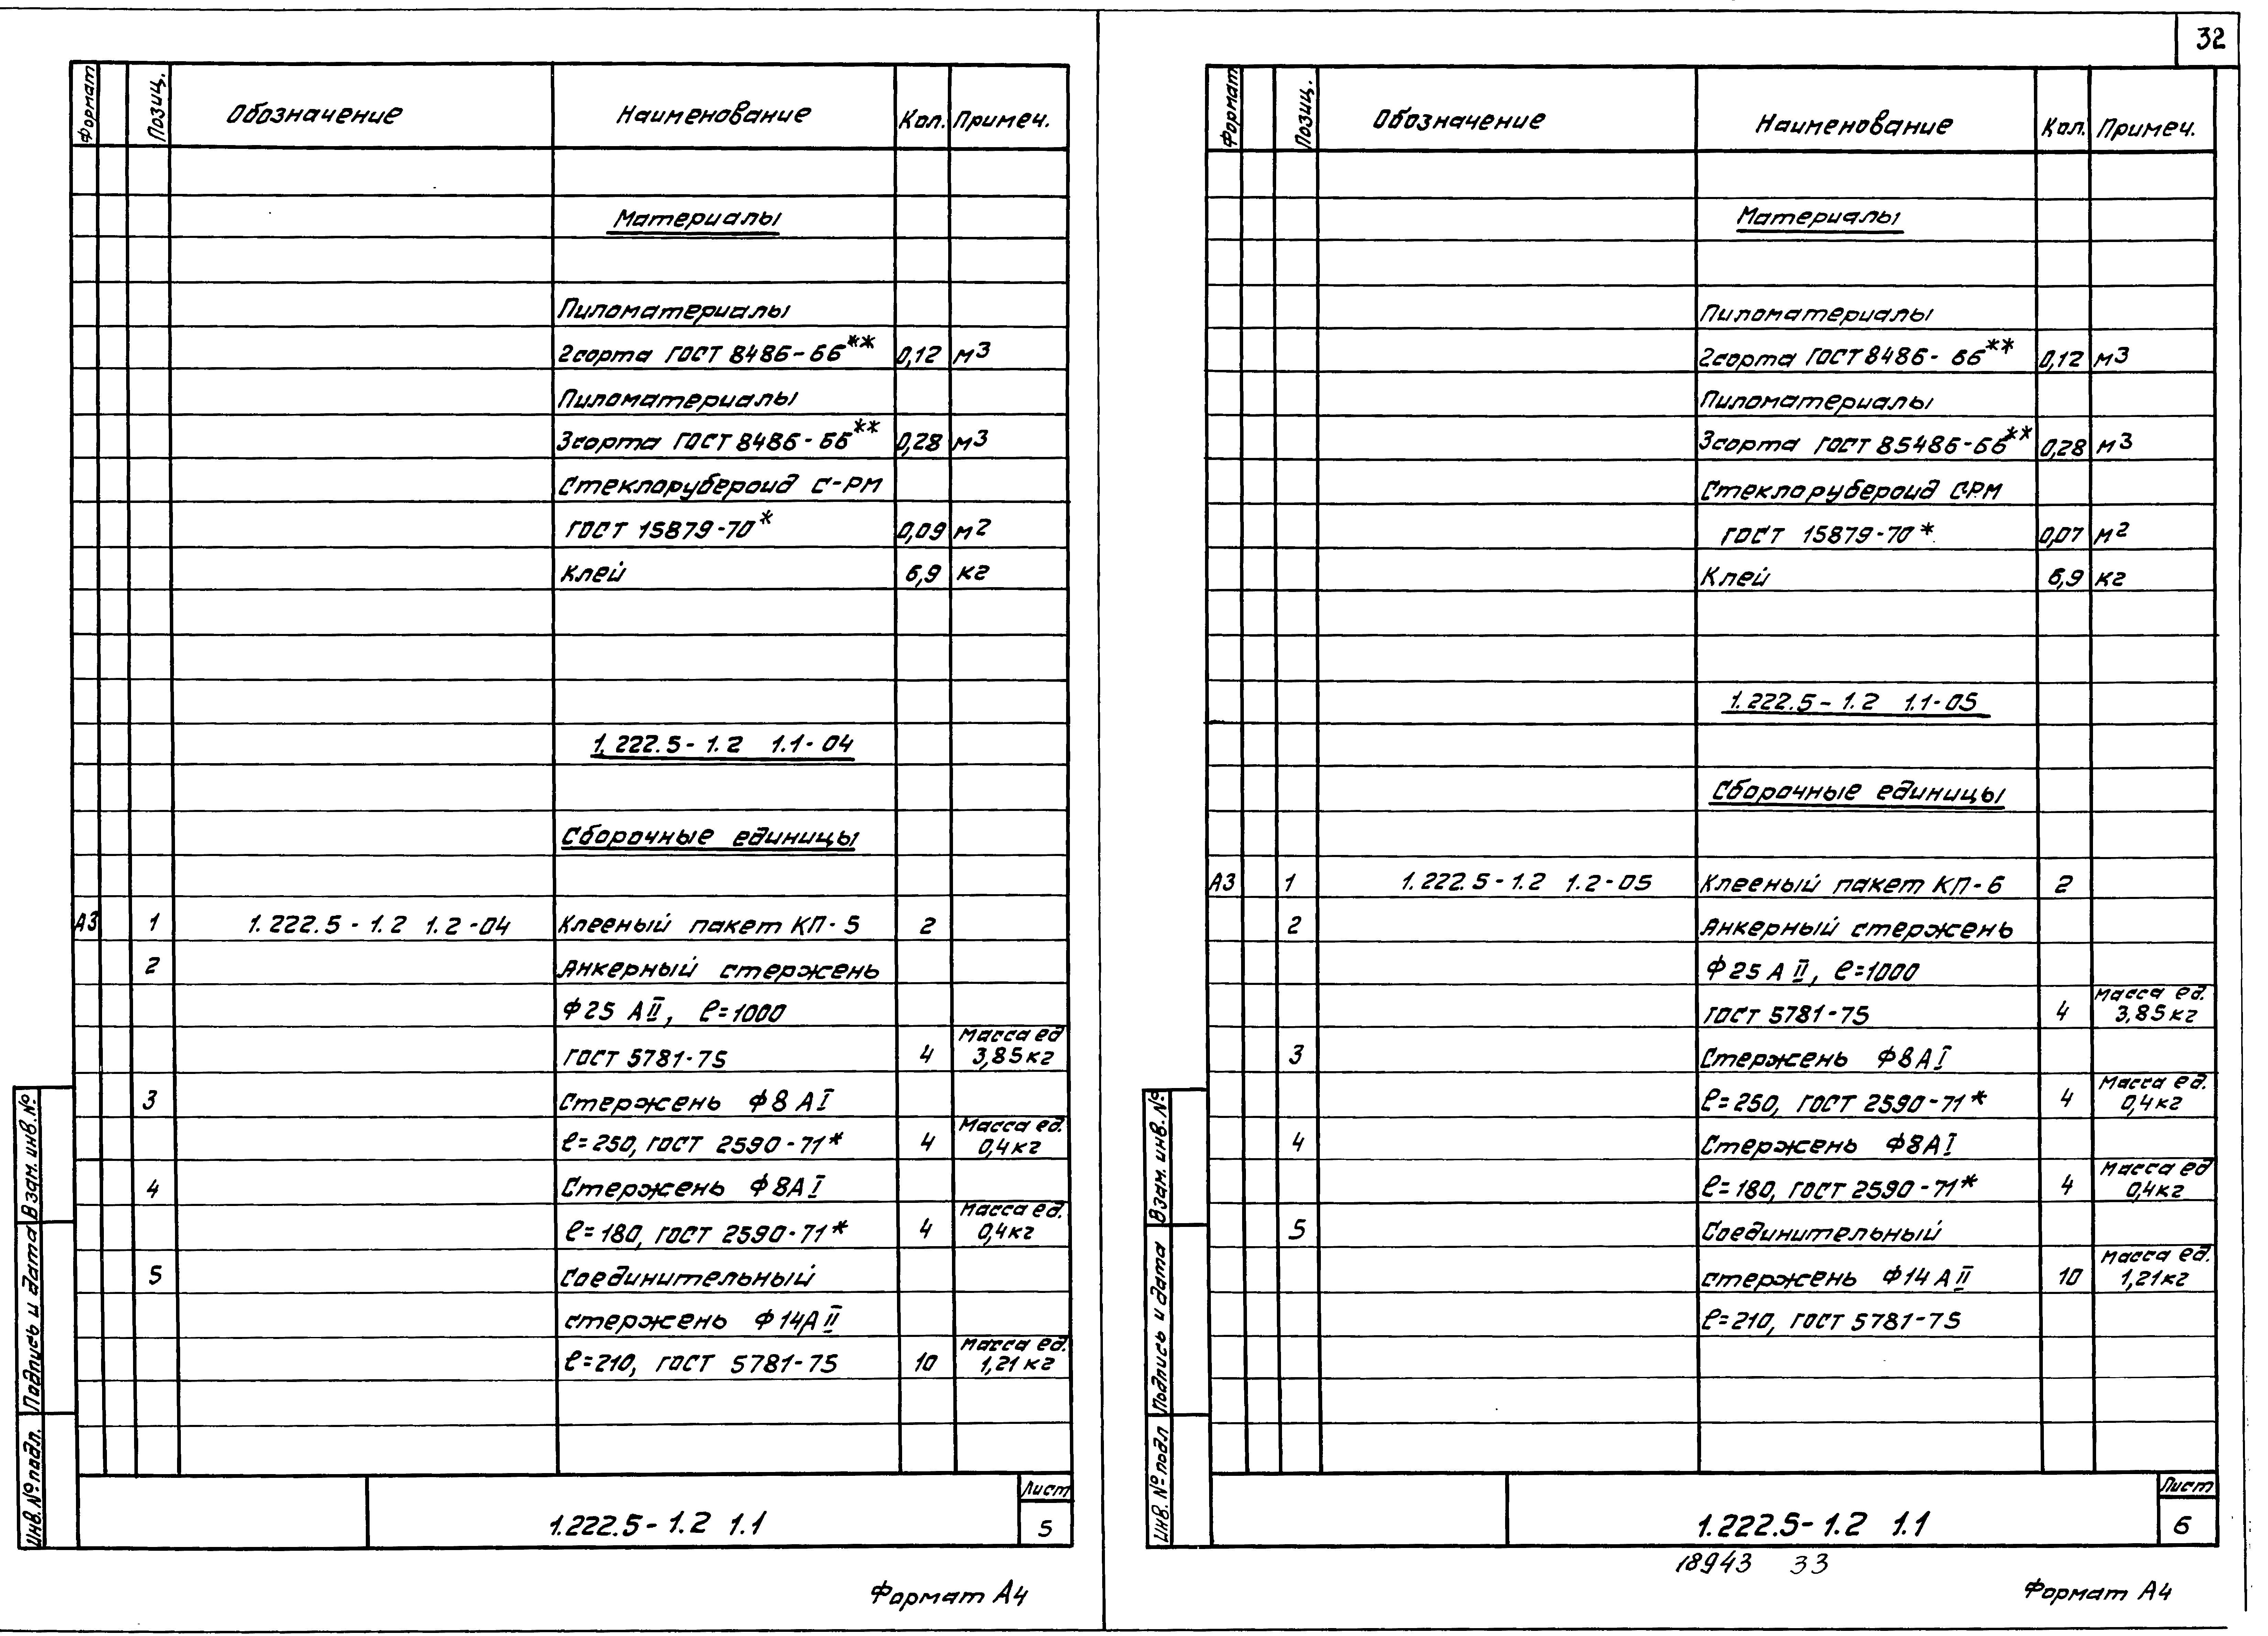 32
Формат Позиц. Обозначение Наименование Кол. Примеч.
Материалы
Пиломатериалы
2сорта ГОСТ 8486-66** 0,12 м3
Пиломатериалы
3сорта ГОСТ 8486-66** 0,28 м3
Стеклорубероид С-РМ
ГОСТ 15879-70* 0,09 м2
Клей 6,9 кг
1.222.5-1.2 1.1-04
Сборочные единицы
А3 1 1.222.5-1.2 1.2-04 Клееный пакет КП-5 2
2 Анкерный стержень
Ф25 АII, ℓ=1000
Масса ед
ГОСТ 5781-75 4 3,85кг
3 Стержень Ф8 АI
Масса ед.
ℓ=250, ГОСТ 2590-71* 4 0,4кг
4 Стержень Ф8АI
Масса ед.
ℓ=180, ГОСТ 2590-71* 4 0,4кг
5 Соединительный
стержень Ф14АII
Масса ед.
ℓ=210, ГОСТ 5781-75 10 1,21кг
Взам. инв. №
Подпись и дата
Инв. № подл.
1.222.5-1.2 1.1
Лист
5
Формат А4
Формат Позиц. Обозначение Наименование Кол. Примеч.
Материалы
Пиломатериалы
2сорта ГОСТ 8486-66** 0,12 м3
Пиломатериалы
3сорта ГОСТ 85486-66** 0,28 м3
Стеклорубероид С-РМ
ГОСТ 15879-70* 0,07 м2
Клей 6,9 кг
1.222.5-1.2 1.1-05
Сборочные единицы
А3 1 1.222.5-1.2 1.2-05 Клееный пакет КП-6 2
2 Анкерный стержень
Ф25 А II, ℓ=1000
Масса ед.
ГОСТ 5781-75 4 3,85кг
3 Стержень Ф8АI
Масса ед.
ℓ=250, ГОСТ 2590-71* 4 0,4кг
4 Стержень Ф8АI
Масса ед
ℓ=180, ГОСТ 2590-71* 4 0,4кг
5 Соединительный
Масса ед.
стержень Ф14АII 10 1,21кг
ℓ=210, ГОСТ 5781-75
Взам. инв. №
Подпись и дата
Инв. № подл
1.222.5-1.2 1.1
Лист
6
18943 33
Формат А4